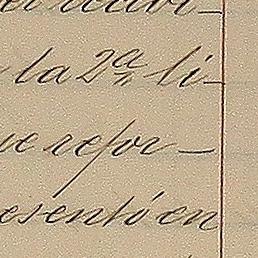 la 2ª li-
ue refor-
esentó en